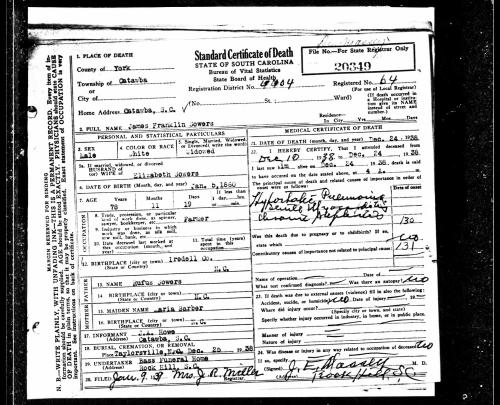 Standard Certificate of Death
STATE OF SOUTH CAROLINA
Bureau of Vital Statistics
State Board of Health
File No.—For State Registrar Only
20349
1. PLACE OF DEATH
County of York
Township of Catawba
or
City of
Home Address Catawba, S.C.
Registration District No. 4404
Registered No. 64
(For use of Local Registrar)
(No. St.; Ward)
(If death occurred in a Hospital or Institution give its NAME instead of street and number.)
Residence—In City Yrs. Mos. Days
2. FULL NAME James Franklin Sowers
PERSONAL AND STATISTICAL PARTICULARS
3. SEX
Male
4. COLOR OR RACE
White
5. Single, Married, Widowed, or Divorced (write the word)
Widowed
5a. If married, widowed, or divorced
HUSBAND of
(or) WIFE of Elizabeth Sowers
6. DATE OF BIRTH (Month, day, and year) Jan. 5, 1860
7. AGE Years Months Days
78 11 19
OCCUPATION
8. Trade, profession, or particular kind of work done, as spinner, sawyer, bookkeeper, etc. Farmer
9. Industry or business in which work was done, as silk mill, saw mill, bank, etc.
10. Date deceased last worked at this occupation (month, and year)
11. Total time (years) spent in this occupation
12. BIRTHPLACE (city or town) Iredell Co.
N.C.
FATHER
13. NAME Rufus Sowers
14. BIRTHPLACE (city or town)
N.C.
MOTHER
15. MAIDEN NAME Maria Barber
16. BIRTHPLACE (city or town)
N.C.
17. INFORMANT
Catawba, S.C.
18. BURIAL, CREMATION, OR REMOVAL
Place Taylorsville, N.C. Dec. 25 1938
19. UNDERTAKER Bass Funeral Home
Rock Hill, S.C.
20. FILED Jan. 9, 39 Mrs. J. R. Miller
MEDICAL CERTIFICATE OF DEATH
21. DATE OF DEATH (month, day, and year) Dec. 24, 1938
22. I HEREBY CERTIFY, That I attended deceased from
Dec 10 1938 to Dec 24 1938
I last saw him alive on Dec 24 1938, death is said
to have occurred on the date stated above, at
The principal cause of death and related causes of importance in order of onset were as follows:
Hypostatic Pneumonia
Chronic Nephritis
130
Was this death due to pregnancy or to childbirth? If so, state which no
131
Contributory causes of importance not related to principal cause:
Name of operation Date of
What test confirmed diagnosis? Was there an autopsy? no
23. If death was due to external causes (violence) fill in also the following:
Accident, suicide, or homicide? no Date of injury 19
Where did injury occur?
Specify whether injury occurred in industry, in home, or in public place.
Manner of injury
Nature of injury
24. Was disease or injury in any way related to occupation of deceased? no
If so, specify
J. E. Massey M. D.
Rock Hill, S.C.
MARGIN RESERVED FOR BINDING